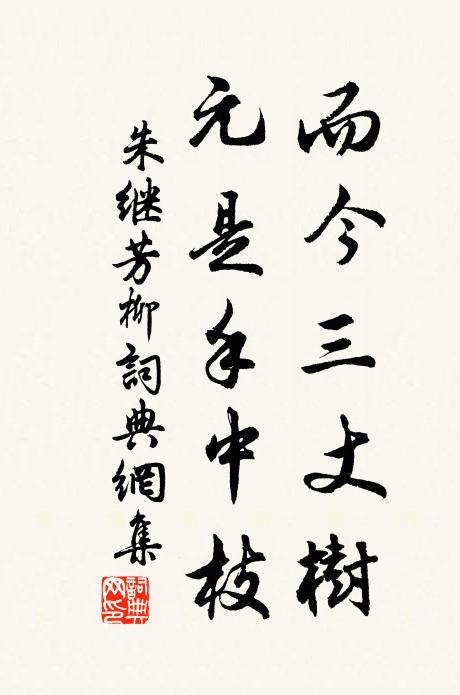 而今三丈樹
元是手中枝
朱继芳柳詞典網集
詞典网印